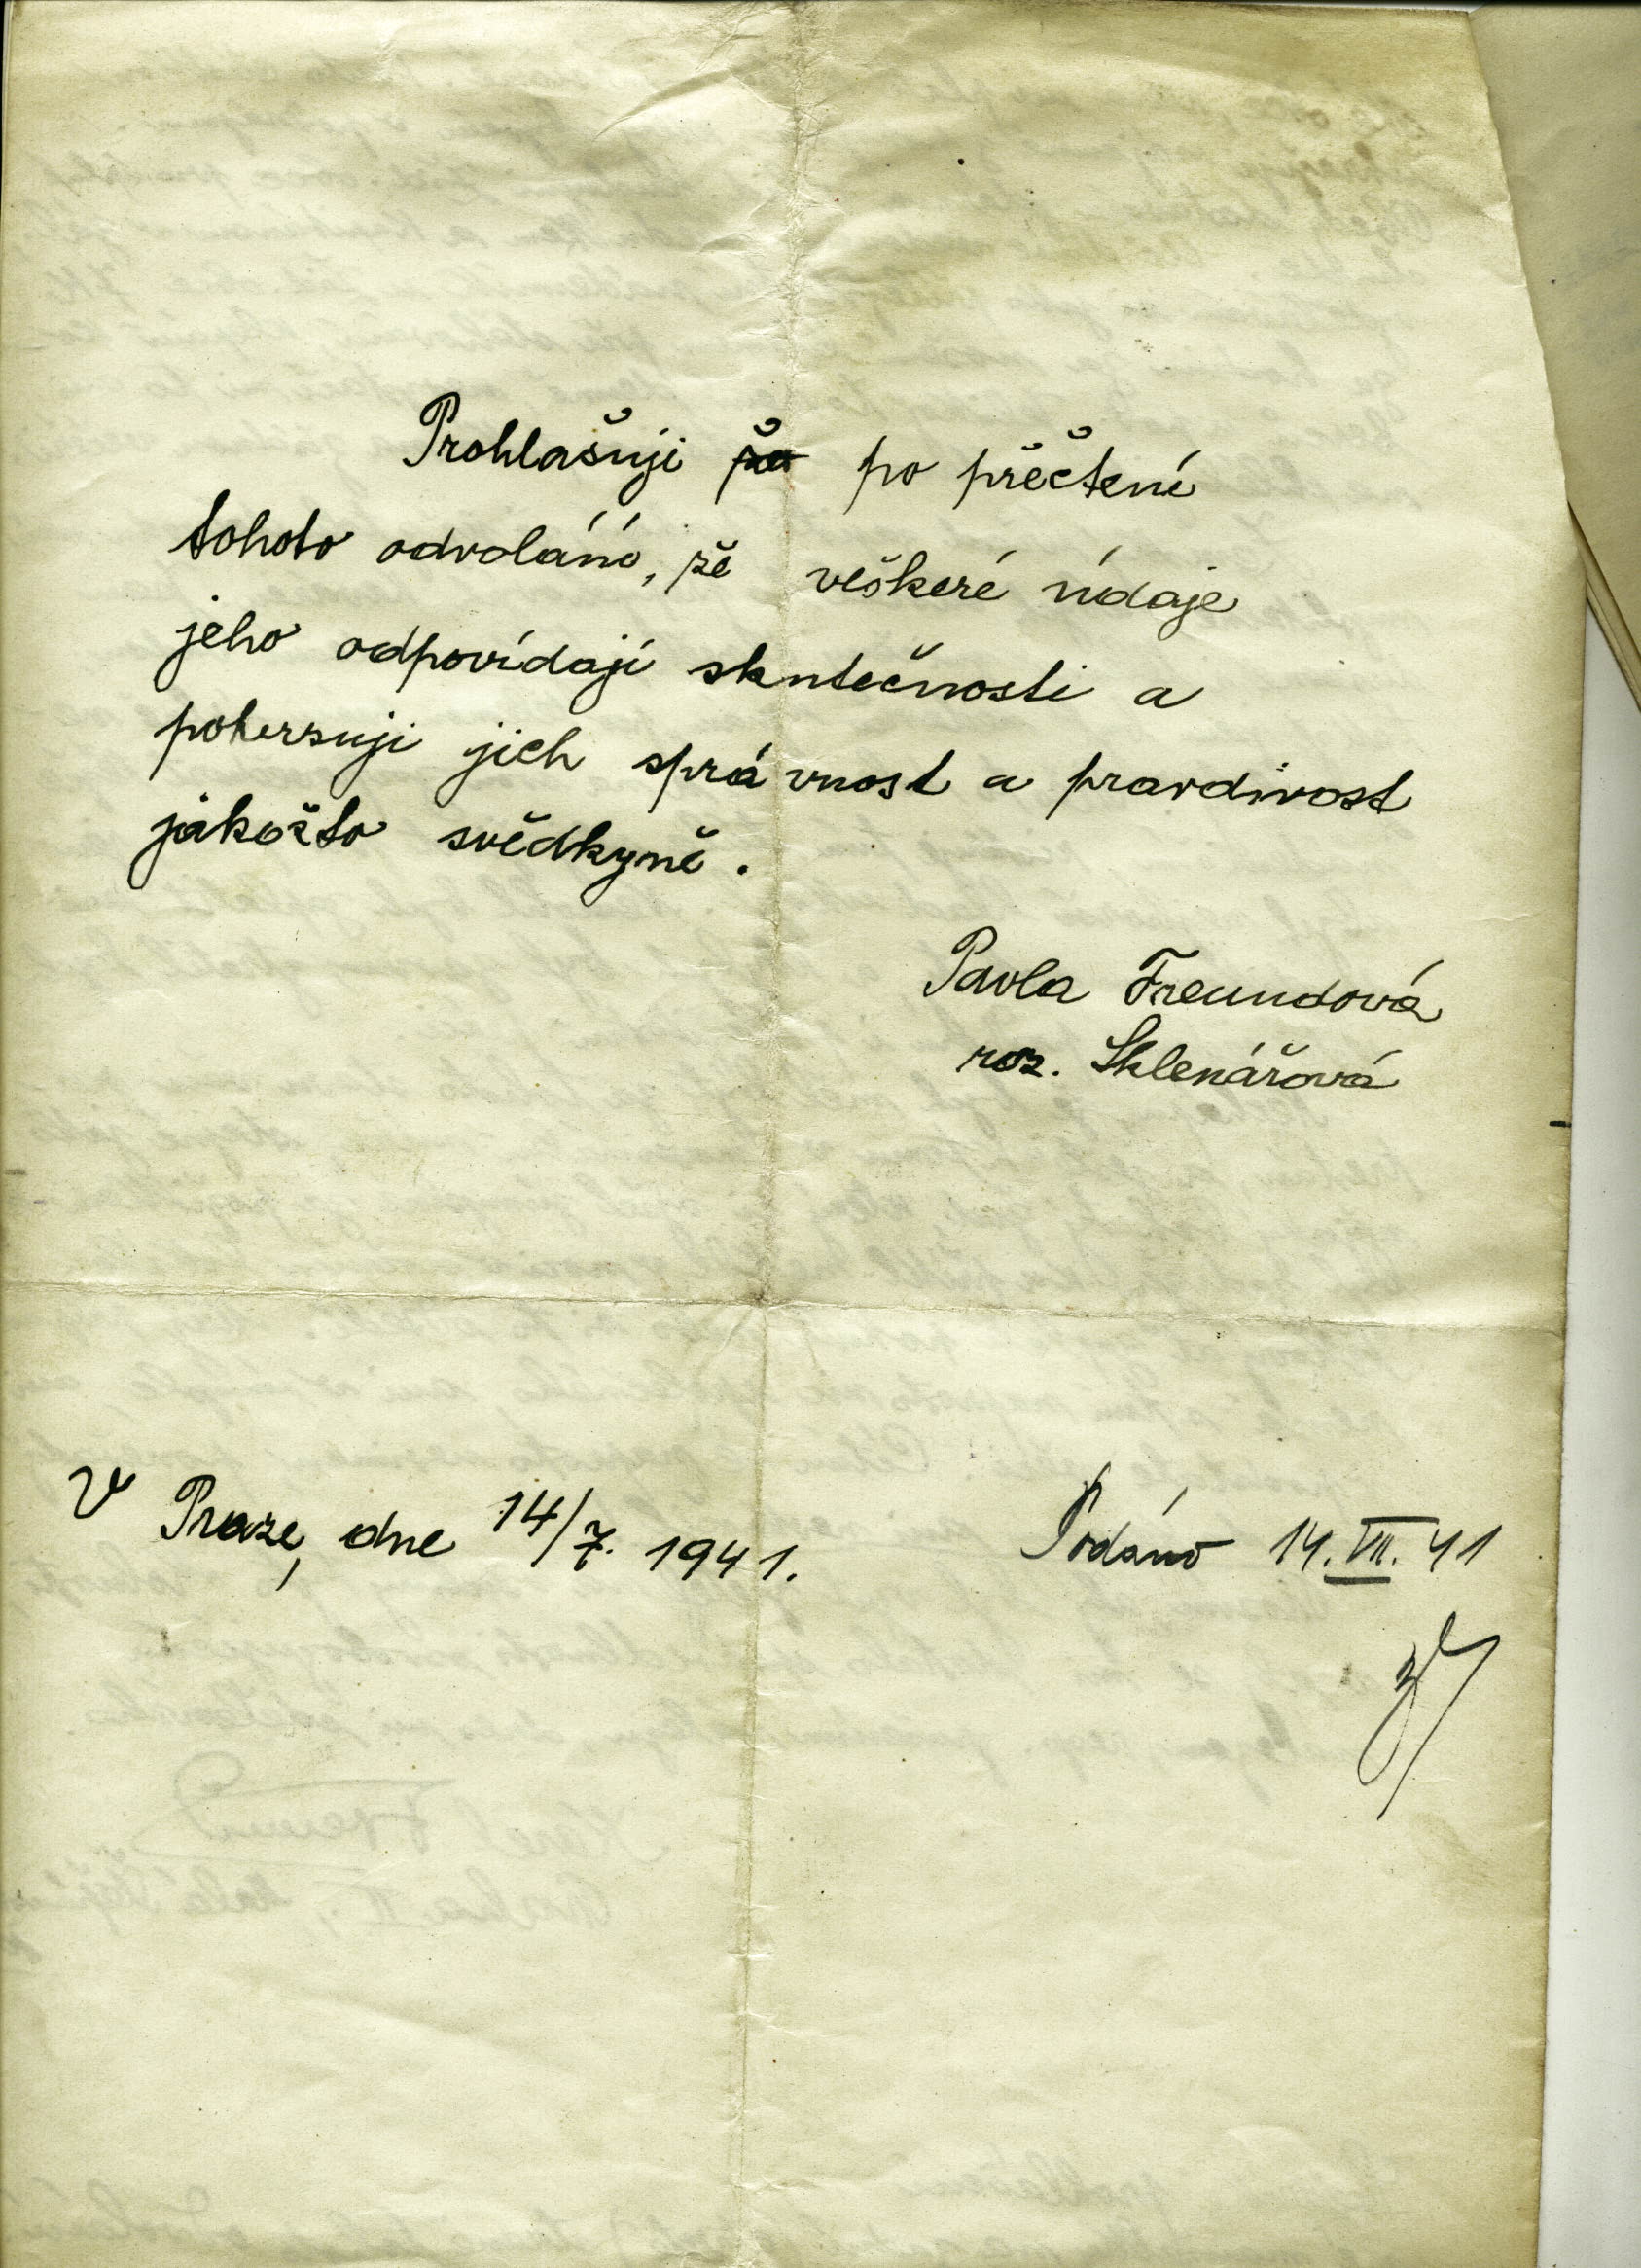 Prohlašuji že po přečtení
tohoto odvolání, že veškeré údaje
jeho odpovídají skutečnosti a
potvrzuji jich správnost a pravdivost
jakožto svědkyně.
Pavla Freundová
roz. Sklenářová
V Praze, dne 14/7. 1941.
Podáno 14. VII. 41